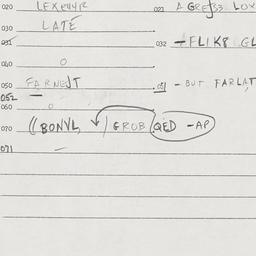 020 LEXPHYR
021 A GREJ33 LOV
030 LATÉ
031
032 - FLIKP GL
040
O
050 FARNEST
051 - BUT FARLAT
052
060 O
070 ((BONVL ) GROB (QED -AP)
071 -